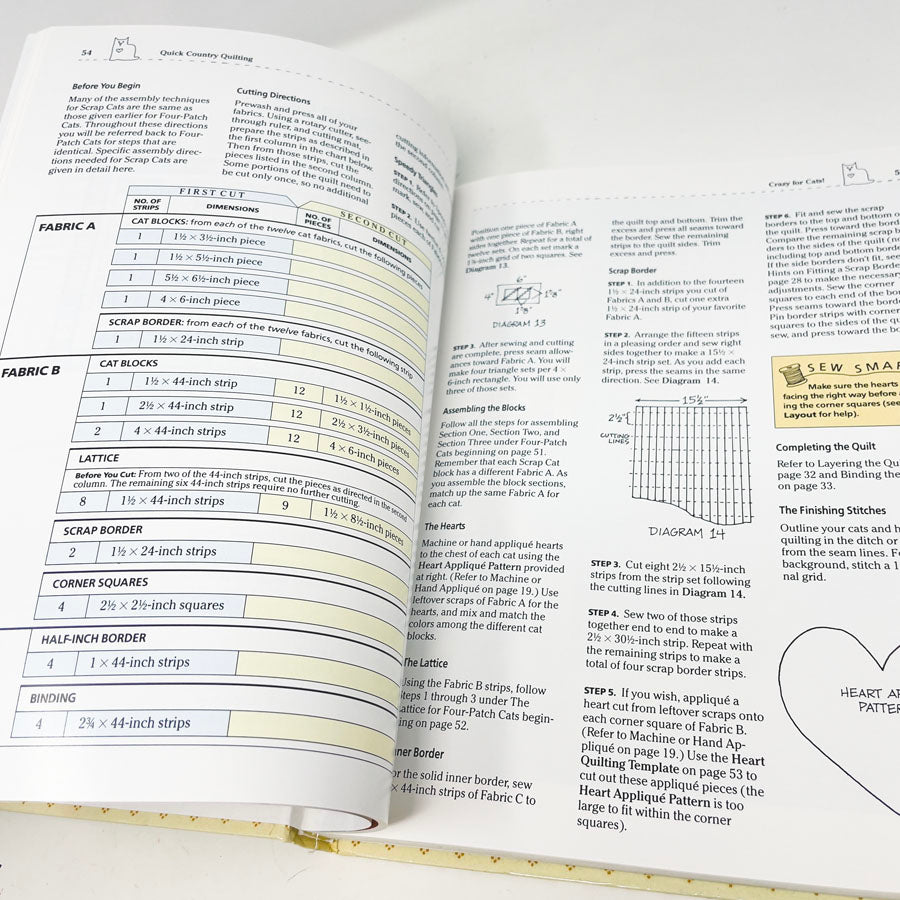 54
Quick Country Quilting
Before You Begin
Many of the assembly techniques
for Scrap Cats are the same as
those given earlier for Four-Patch
Cats. Throughout these directions
you will be referred back to Four-
Patch Cats for steps that are
identical. Specific assembly direc-
tions needed for Scrap Cats are
given in detail here.
Cutting Directions
Prewash and press all of your
fabrics. Using a rotary cutter, see-
through ruler, and cutting mat,
prepare the strips as described in
the first column in the chart below.
Then from those strips, cut the
pieces listed in the second column.
Some portions of the quilt need to
be cut only once, so no additional
cutting information
the second
Speedy Triangles
STEP 1.
STEP 2.
FIRST CUT
SECOND CUT
NO. OF
STRIPS
DIMENSIONS
NO. OF
PIECES
DIMENSIONS
FABRIC A
CAT BLOCKS: from each of the twelve cat fabrics, cut the following pieces
1 1½ × 3½-inch piece
1 1½ × 5½-inch piece
1 5½ × 6½-inch piece
1 4 × 6-inch piece
SCRAP BORDER: from each of the twelve fabrics, cut the following strip
1 1½ × 24-inch strip
FABRIC B
CAT BLOCKS
1 1½ × 44-inch strip 12 1½ × 1½-inch pieces
1 2½ × 44-inch strip 12 2½ × 3½-inch pieces
2 4 × 44-inch strips 12 4 × 6-inch pieces
LATTICE
Before You Cut: From two of the 44-inch strips, cut the pieces as directed in the second
column. The remaining six 44-inch strips require no further cutting.
8 1½ × 44-inch strips 9 1½ × 8½-inch pieces
SCRAP BORDER
2 1½ × 24-inch strips
CORNER SQUARES
4 2½ × 2½-inch squares
HALF-INCH BORDER
4 1 × 44-inch strips
BINDING
4 2¾ × 44-inch strips
Crazy for Cats!
5
Position one piece of Fabric A
with one piece of Fabric B, right
sides together. Repeat for a total of
twelve sets. On each set mark a
-inch grid of two squares. See
Diagram 13.
6"
4"
1⅝"
1⅝"
DIAGRAM 13
STEP 3. After sewing and cutting
are complete, press seam allow-
ances toward Fabric A. You will
make four triangle sets per 4 ×
6-inch rectangle. You will use only
three of those sets.
Assembling the Blocks
Follow all the steps for assembling
Section One, Section Two, and
Section Three under Four-Patch
Cats beginning on page 51.
Remember that each Scrap Cat
block has a different Fabric A. As
you assemble the block sections,
match up the same Fabric A for
each cat.
The Hearts
Machine or hand appliqué hearts
to the chest of each cat using the
Heart Appliqué Pattern provided
at right. (Refer to Machine or
Hand Appliqué on page 19.) Use
leftover scraps of Fabric A for the
hearts, and mix and match the
colors among the different cat
blocks.
The Lattice
Using the Fabric B strips, follow
Steps 1 through 3 under The
Lattice for Four-Patch Cats begin-
ning on page 52.
nner Border
or the solid inner border, sew
× 44-inch strips of Fabric C to
the quilt top and bottom. Trim the
excess and press all seams toward
the border. Sew the remaining
strips to the quilt sides. Trim
excess and press.
Scrap Border
STEP 1. In addition to the fourteen
1½ × 24-inch strips you cut of
Fabrics A and B, cut one extra
1½ × 24-inch strip of your favorite
Fabric A.
STEP 2. Arrange the fifteen strips
in a pleasing order and sew right
sides together to make a 15½ ×
24-inch strip set. As you add each
strip, press the seams in the same
direction. See Diagram 14.
15½"
2½"
CUTTING
LINES
DIAGRAM 14
STEP 3. Cut eight 2½ × 15½-inch
strips from the strip set following
the cutting lines in Diagram 14.
STEP 4. Sew two of those strips
together end to end to make a
2½ × 30½-inch strip. Repeat with
the remaining strips to make a
total of four scrap border strips.
STEP 5. If you wish, appliqué a
heart cut from leftover scraps onto
each corner square of Fabric B.
(Refer to Machine or Hand Ap-
pliqué on page 19.) Use the Heart
Quilting Template on page 53 to
cut out these appliqué pieces (the
Heart Appliqué Pattern is too
large to fit within the corner
squares).
STEP 6. Fit and sew the scrap
borders to the top and bottom o
the quilt. Press toward the bord
Compare the remaining scrap b
ders to the sides of the quilt (no
including top and bottom border
If the side borders don't fit, see
Hints on Fitting a Scrap Borde
page 28 to make the necessary
adjustments. Sew the corner
squares to each end of the bor
Press seams toward the borde
Pin border strips with corner
squares to the sides of the qu
sew, and press toward the bo
SEW SMAR
Make sure the hearts
facing the right way before a
ing the corner squares (see
Layout for help).
Completing the Quilt
Refer to Layering the Qui
page 32 and Binding the
on page 33.
The Finishing Stitches
Outline your cats and h
quilting in the ditch or
from the seam lines. Fo
background, stitch a 1
nal grid.
HEART AP
PATTER